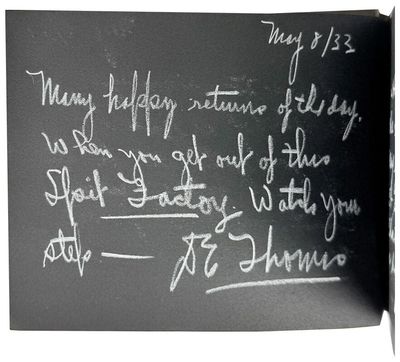 May 8/33
Many happy returns of the day.
When you get out of this
Spit Factory Watch your
step — DE Thomas